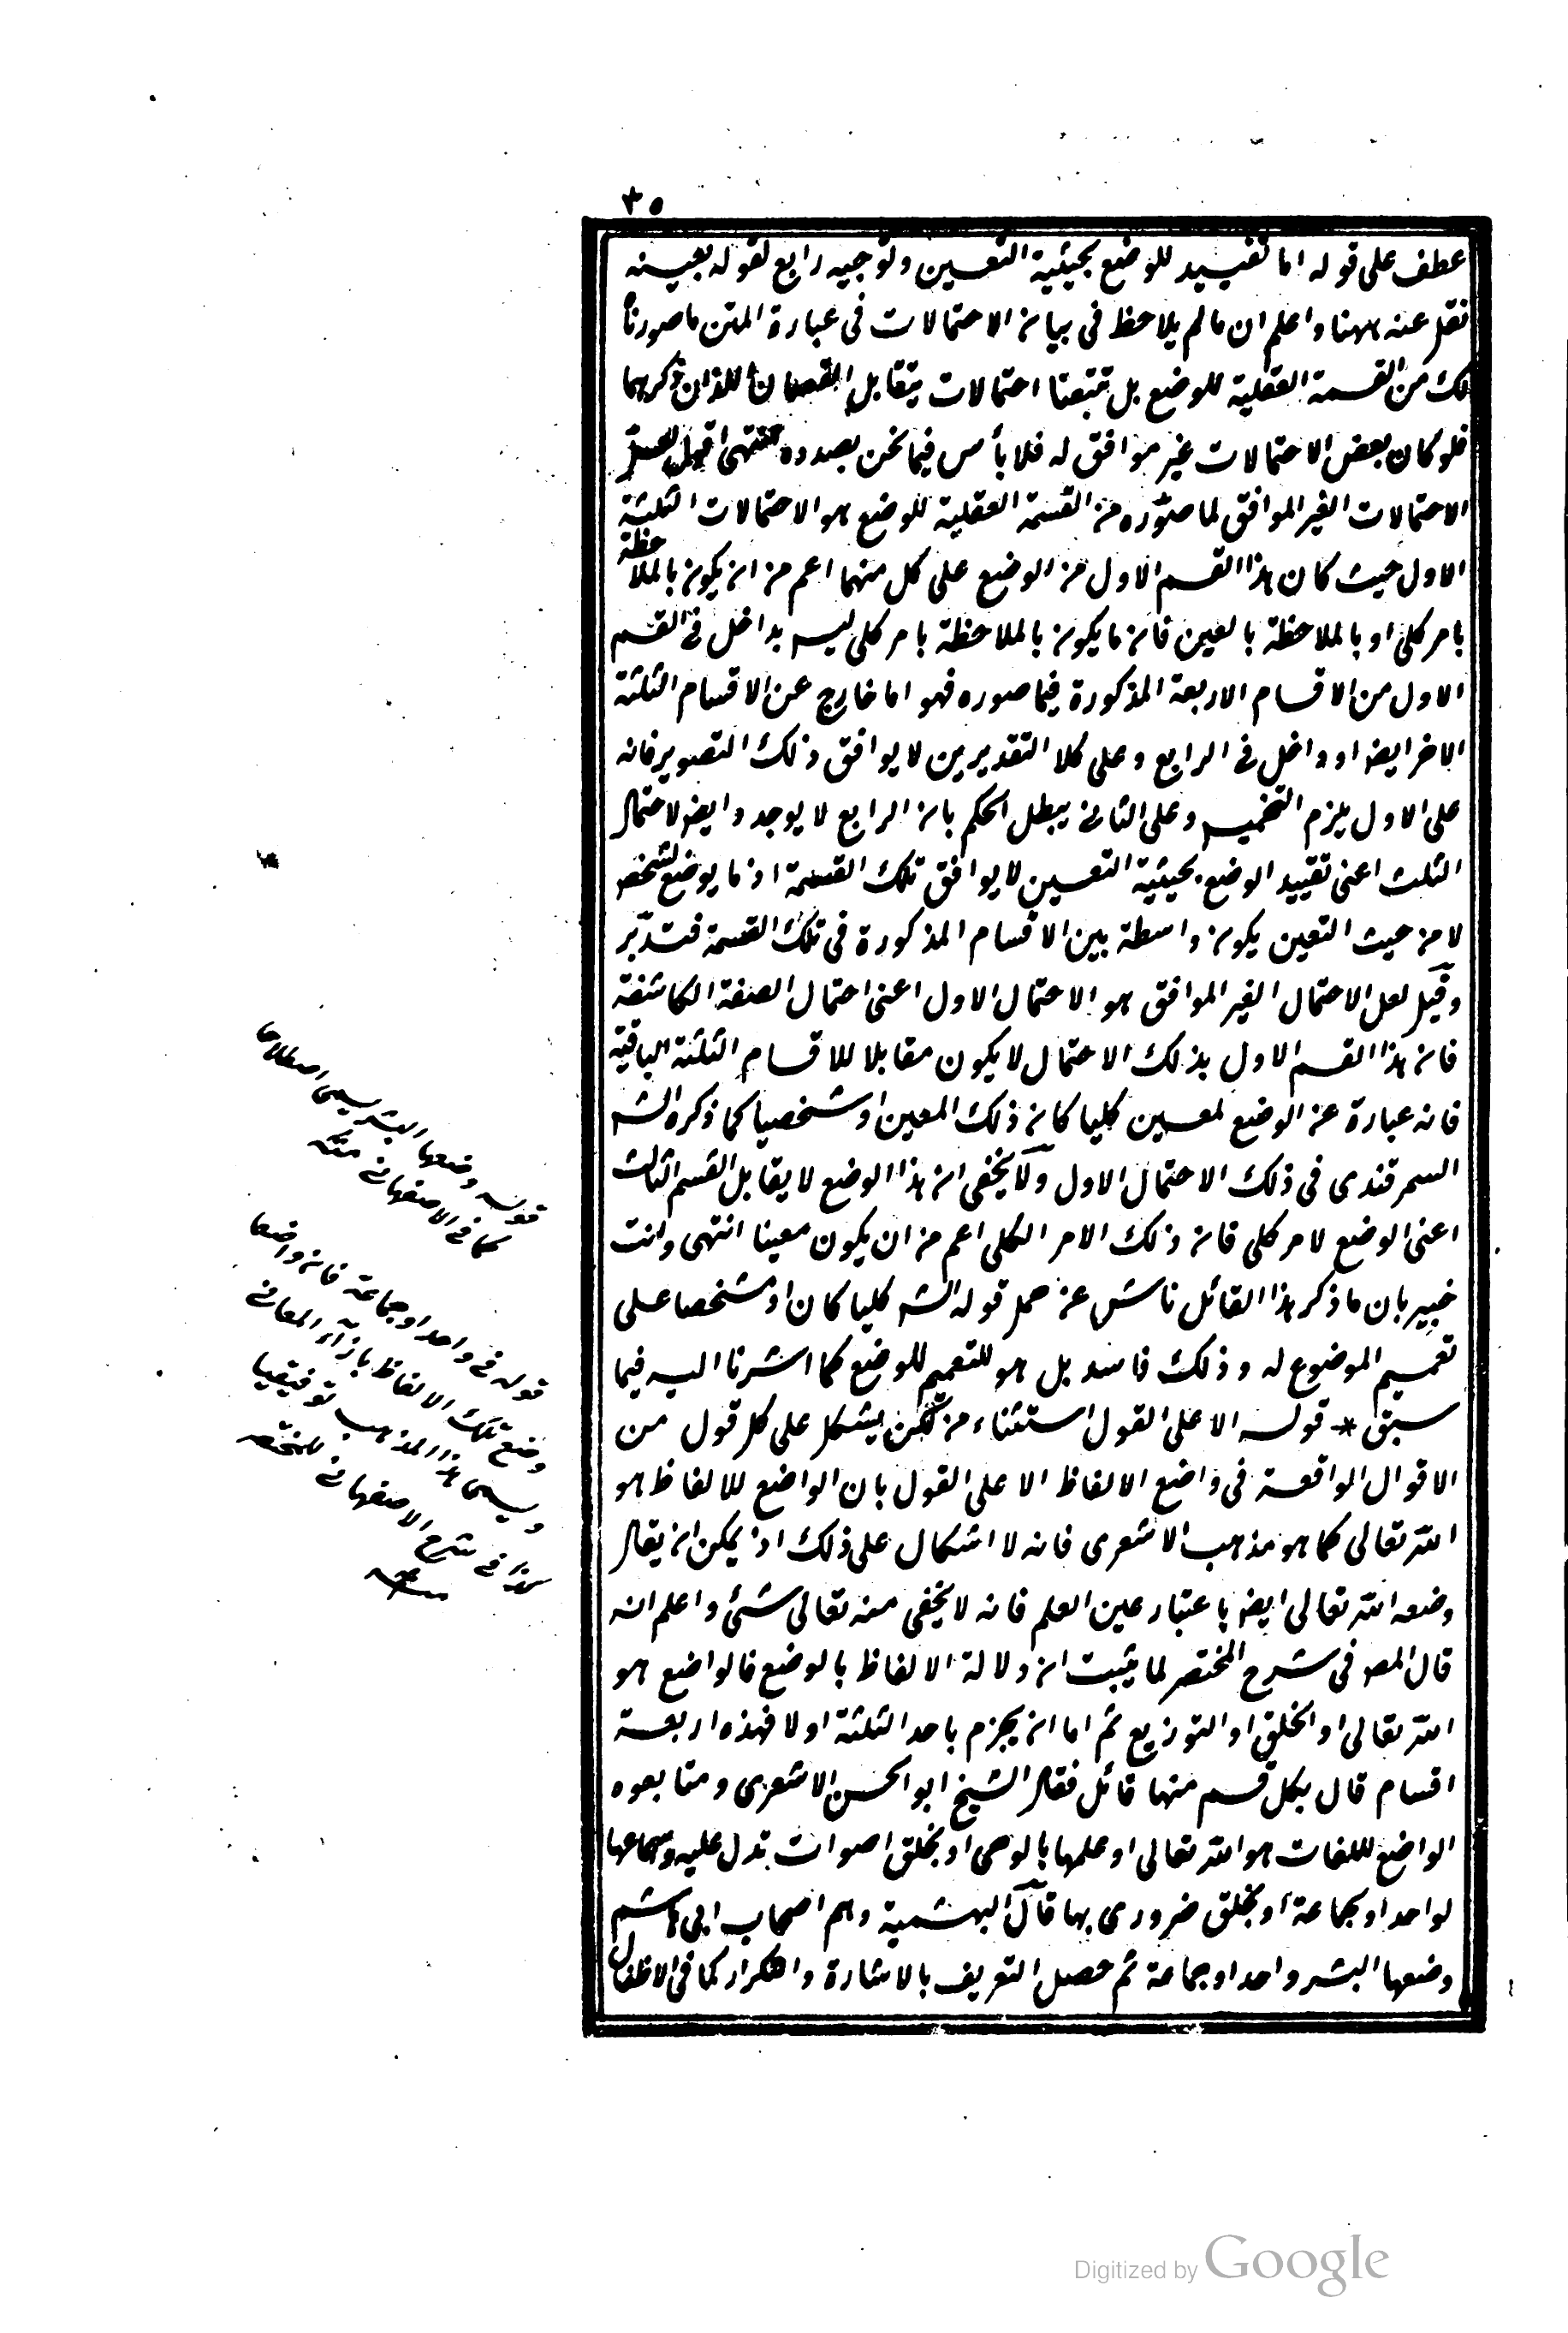 ٣٥
عطف على قوله اما تقييد للوضع بحيثية التعيين وتوجيه رابع لقوله بعينه
نقل عنه ههنا واعلم ان ما لم يلاحظ فى بيان الاحتمالات فى عبارة المتن ما صورنا
لك من القسمة العقلية للوضع بل تتبعنا احتمالات يتقابل القسمان اللذان ذكرهما
فلو كان بعض الاحتمالات غير موافق له فلا بأس فيما نحن بصدده انتهى اقول بعض
الاحتمالات الغير الموافق لما صوّره من القسمة العقلية للوضع هو الاحتمالات الثلثة
الاول حيث كان هذا القسم الاول من الوضع على كل منهما اعم من ان يكون بالملاحظة
بامر كلى او بالملاحظة بالعين فان ما يكون بالملاحظة بامر كلى ليس بداخل فى القسم
الاول من الاقسام الاربعة المذكورة فيما صوره فهو اما خارج عن الاقسام الثلثة
الاخر ايضا او داخل فى الرابع وعلى كلا التقديرين لا يوافق ذلك التصوير فانه
على الاول يلزم التخميس وعلى الثانى يبطل الحكم بان الرابع لا يوجد وايضا لاحتمال
الثلث اعنى تقييد الوضع بحيثية التعيين لا يوافق تلك القسمة اذ ما يوضع لشخص
لا من حيث التعين يكون واسطة بين الاقسام المذكورة فى تلك القسمة فتدبّر
وقيل لعل الاحتمال الغير الموافق هو الاحتمال الاول اعنى احتمال الصفة الكاشفة
فان هذا القسم الاول بذلك الاحتمال لا يكون مقابلا للاقسام الثلثة الباقية
فانه عبارة عن الوضع لمعين كليا كان ذلك المعين او شخصيا كما ذكره الشه
السمرقندى فى ذلك الاحتمال الاول ولا يخفى ان هذا الوضع لا يقابل القسم الثالث
اعنى الوضع لامر كلى فان ذلك الامر الكلى اعم من ان يكون معينا انتهى وانت
خبير بان ما ذكر هذا القائل ناش عن حمل قوله الشه كليا كان او مشخصا على
تعميم الموضوع له وذلك فاسد بل هو للتعميم للوضع كما اشرنا اليه فيما
سبق * قوله الا على القول استثناء من لكن يشكل على كل قول من
الاقوال الواقعة فى واضع الالفاظ الا على القول بان الواضع للالفاظ هو
الله تعالى كما هو مذهب الاشعرى فانه لا اشكال على ذلك اذ يمكن ان يقال
وضعه الله تعالى ايضا باعتبار عين العلم فانه لا يخفى منه تعالى شئ واعلم انه
قال المصه فى شرح المختصر لما يثبت ان دلالة الالفاظ بالوضع فالواضع هو
الله تعالى او الخلق او التوزيع ثم اما ان يجزم باحد الثلثة او لا فهذه اربعة
اقسام قال بكل قسم منها قائل فقال الشيخ ابو الحسن الاشعرى ومتابعوه
الواضع للغات هو الله تعالى او علمها بالوحى او بخلق اصوات تدل عليه وسماعها
لواحد او بجماعة او بخلق ضرورى بها قال البهشمية وهم اصحاب ابى هاشم
وضعها البشر واحد او جماعة ثم حصل التعريف بالاشارة والتكرار كما فى الاطفال
قوله وضعها البشر يسمى اصطلاحا
كما فى الاصفهانى منه
قوله فى واحد او جماعة فان واضعا
وضع تلك الالفاظ بازآء المعانى
ويسمى هذا المذهب توفيقيا
كذا فى شرح الاصفهانى للمختصر
منه
Digitized by Google